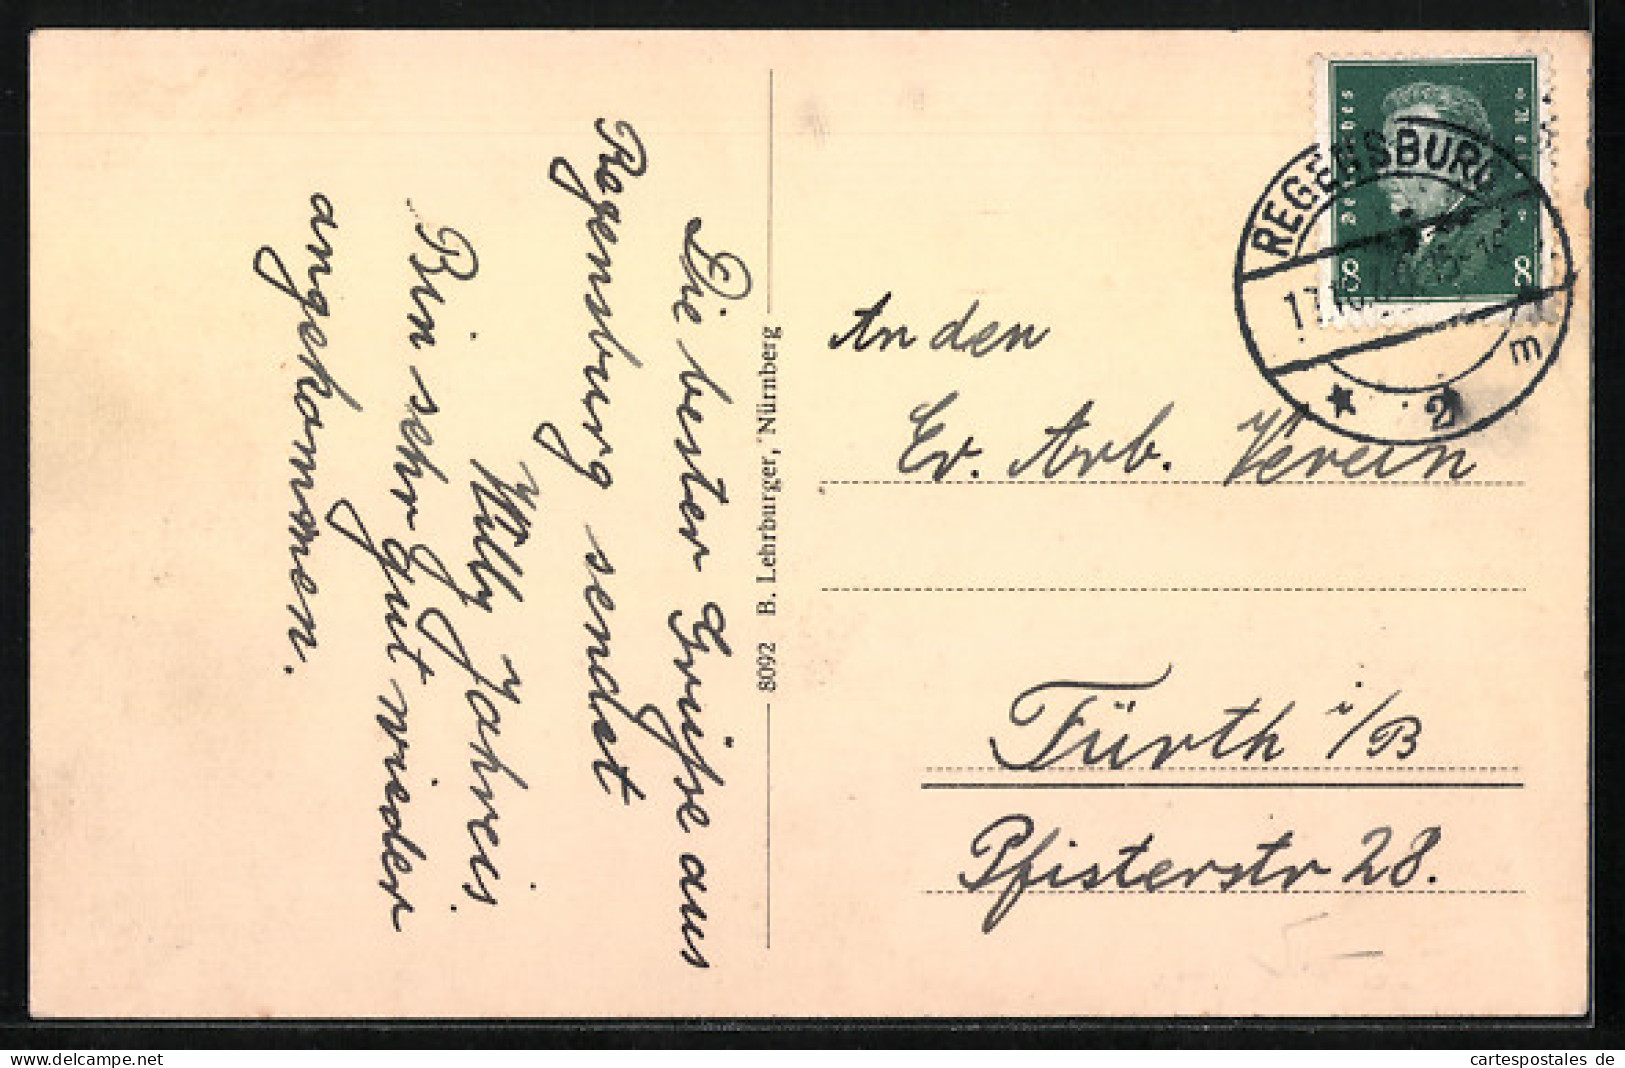 Die besten Grüsse aus
Regensburg sendet
Willy Jahreis
Bin sehr gut wieder
angekommen.
8092 B. Lehrburger, Nürnberg
Deutsches
8 8
REGENSBURG
2 m
An den
Ev. Arb. Verein
Fürth i/B
Pfisterstr 28.
cartespostales de